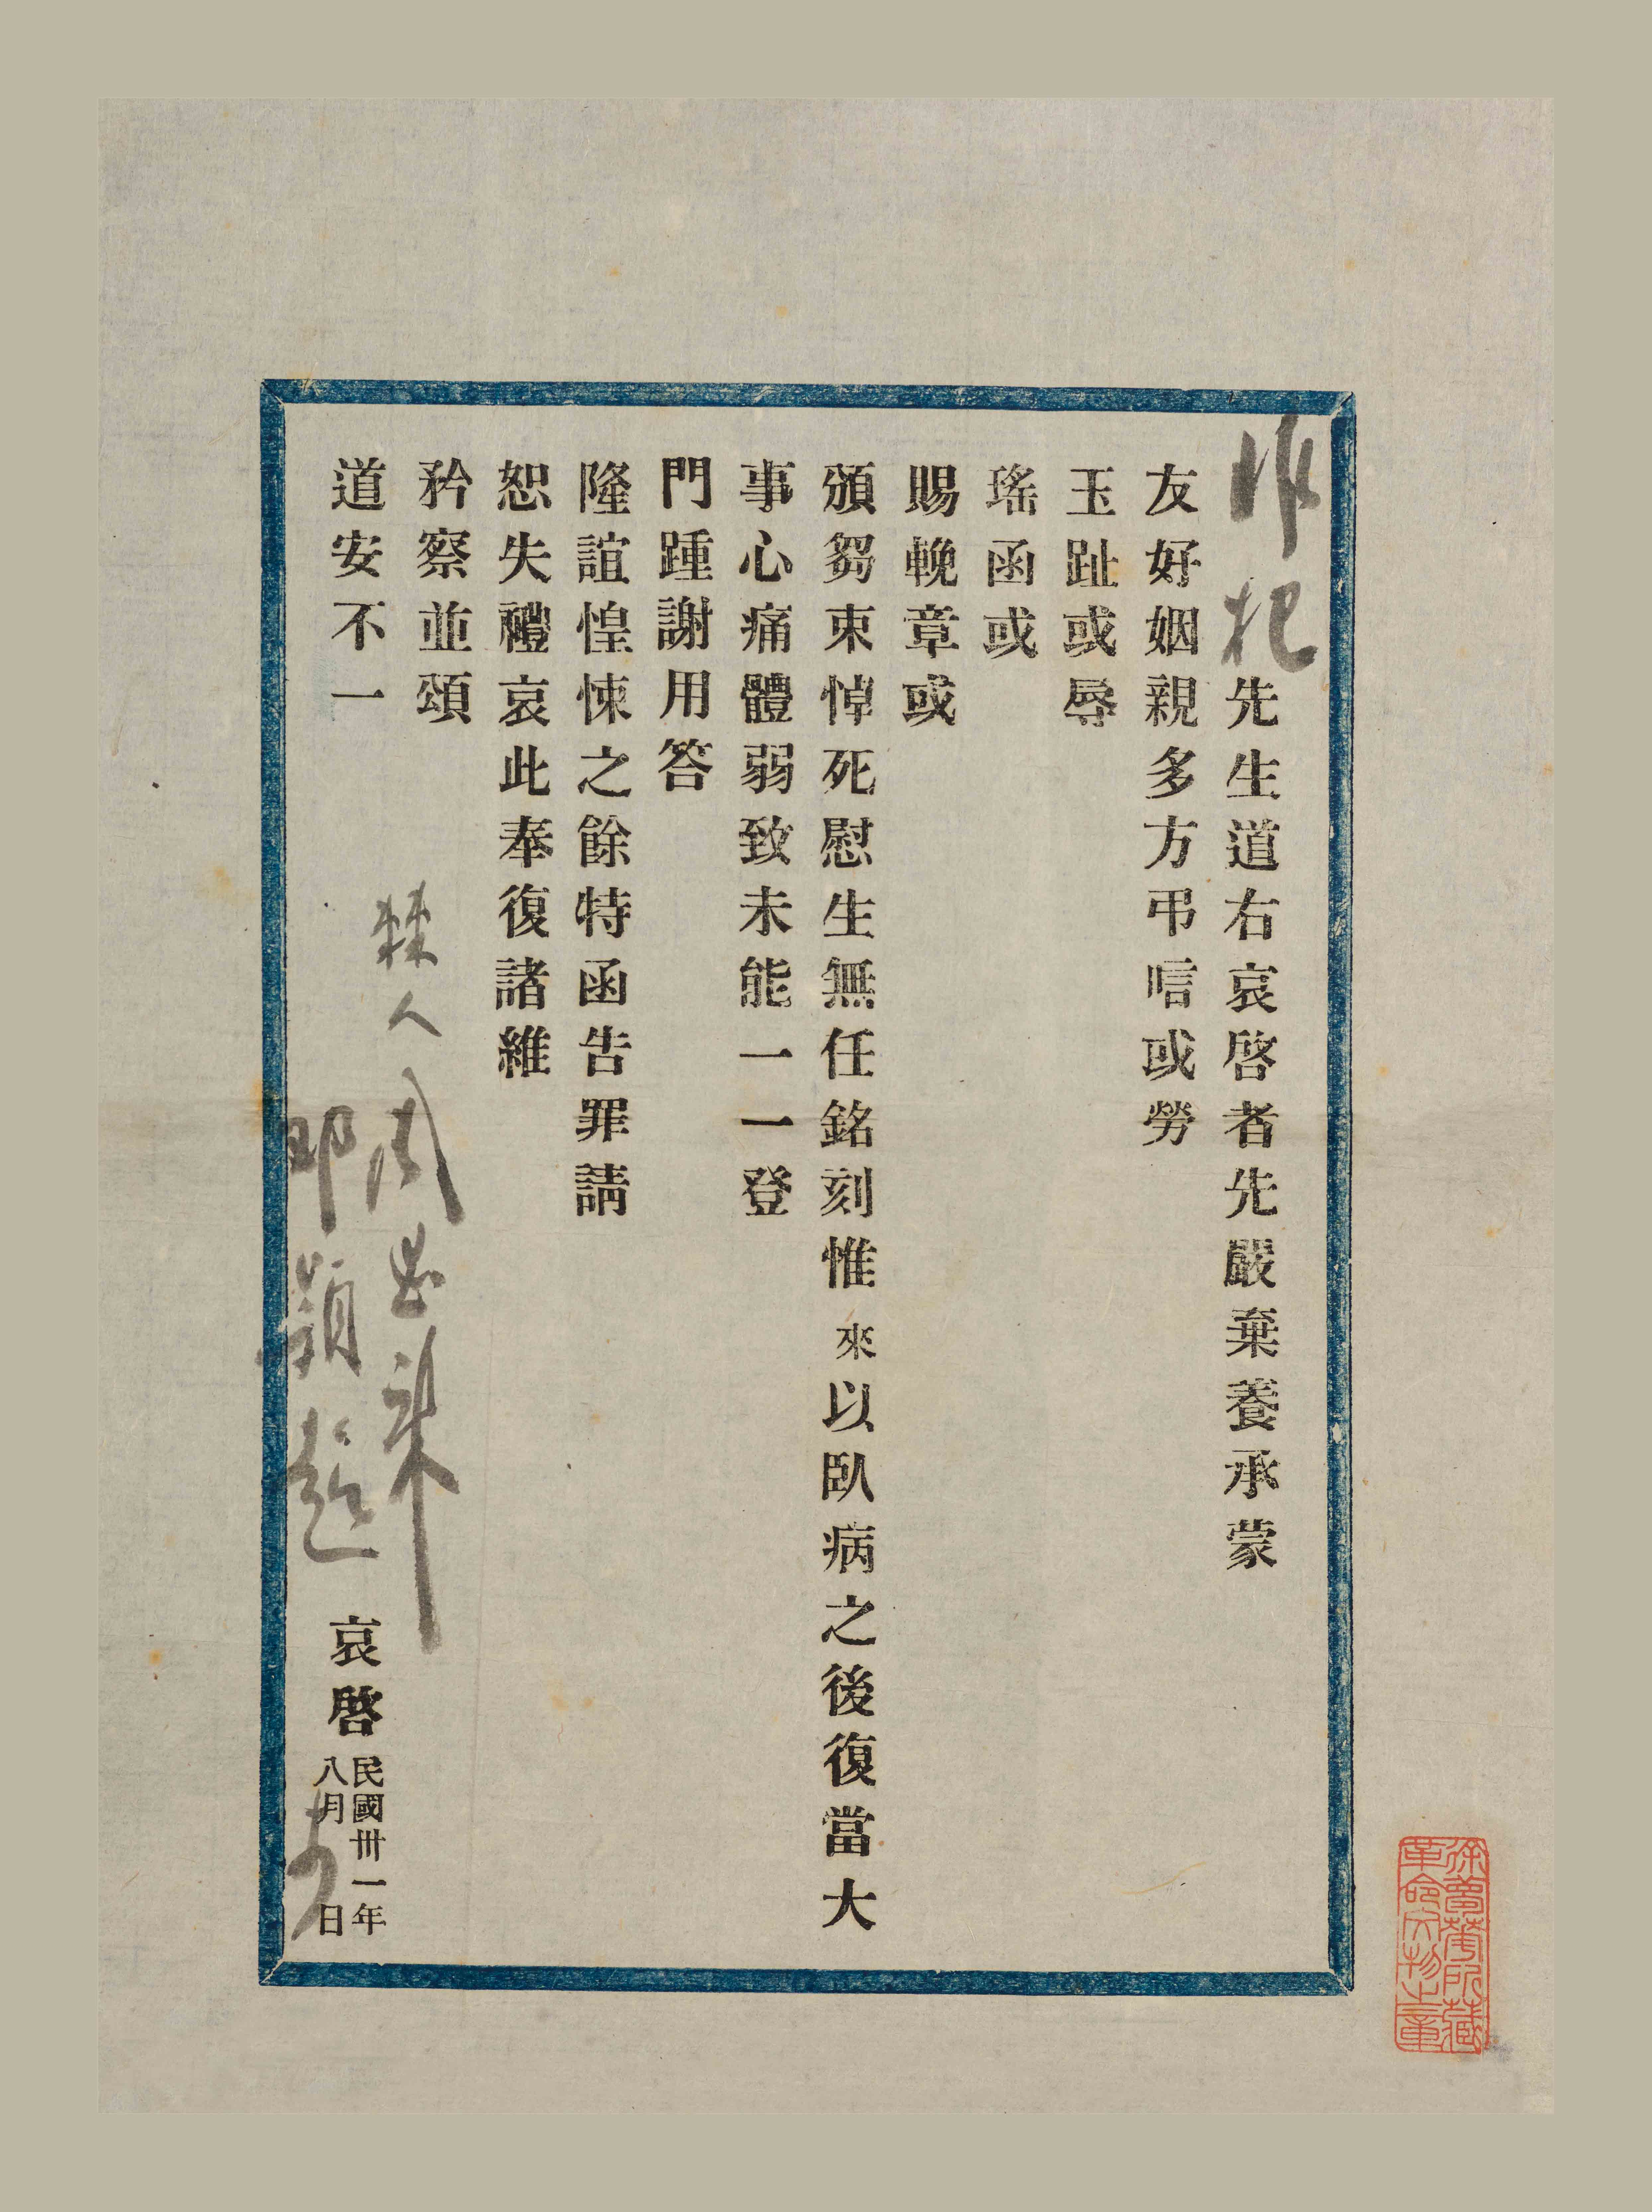 先生道右哀啓者先嚴棄養承蒙
友好姻親多方弔唁或勞
玉趾或辱
瑤函或
賜輓章或
頒芻束悼死慰生無任銘刻惟來以臥病之後復當大
事心痛體弱致未能一一登
門踵謝用答
隆誼惶悚之餘特函告罪請
恕失禮哀此奉復諸維
矜察並頌
道安不一
棘人周恩來
鄧穎超
哀啓
民國卅一年
八月 日
徐曾萼所藏
革命文物之章